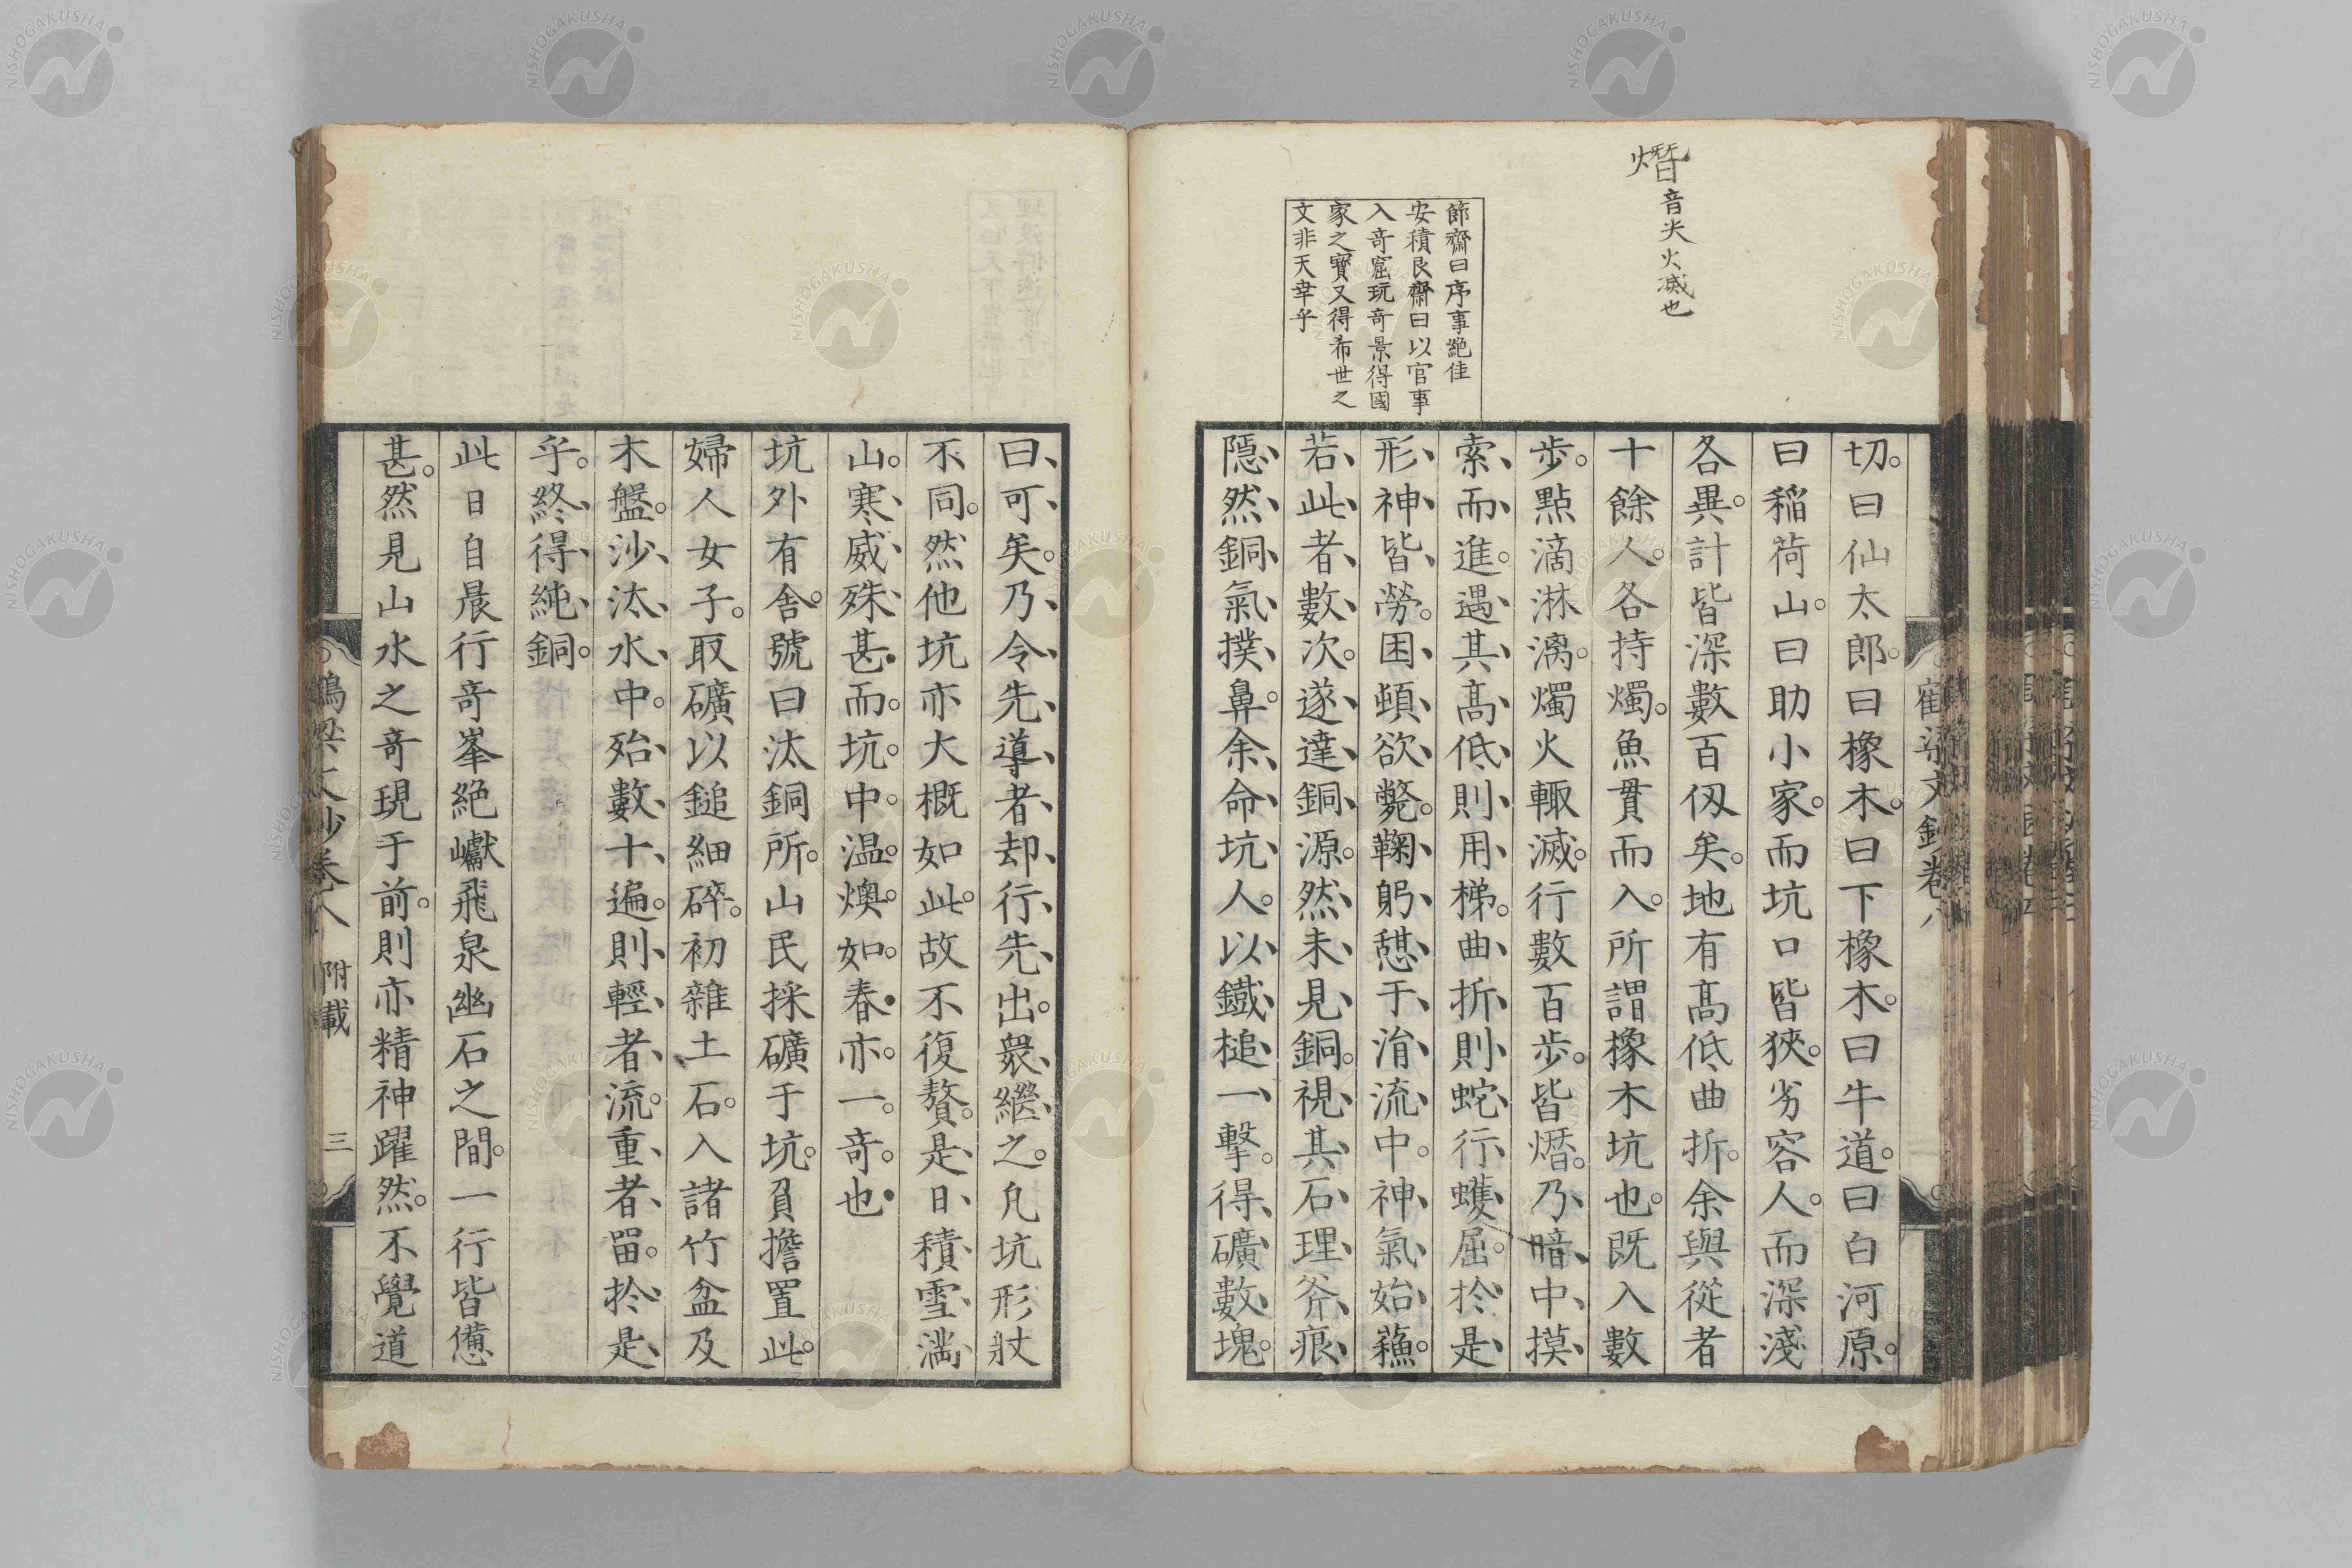 熸音尖火滅也
節齋曰序事絶佳
安積艮齋曰以官事
入奇窟玩奇景得國
家之寶又得希世之
文非天幸乎
切。曰仙太郎。曰橡木。曰下橡木。曰牛道。曰白河原。
曰稲荷山。曰助小家。而坑口皆狹。劣容人。而深淺
各異。計皆深數百仭矣。地有髙低曲折。余與從者
十餘人。各持燭。魚貫而入。所謂橡木坑也。既入數
步。點滴淋漓。燭火輙滅。行數百步。皆熸。乃、暗、中、摸、
索、而、進。遇、其、髙、低、則、用、梯。曲、折、則、蛇、行、蠖、屈。扵、是、
形、神、皆、勞。困、頓、欲、斃。鞠、躬、憇、于、涓、流、中。神、氣、始、蘓。
若、此、者、數、次。遂、達、銅、源。然、未、見、銅。視、其、石、理、斧、痕、
隠、然、銅、氣、撲、鼻。余、命、坑、人。以、鐵、槌、一、擊。得、礦、數、塊。
寉梁文鈔卷八
曰、可、矣。乃、令、先、導、者、却、行、先、出。衆、繼、之。凡坑形狀
不同。然他坑亦大概如此。故不復贅。是、日、積、雪、満、
山。寒、威、殊、甚而。坑。中。温。燠。如。春亦。一。奇。也
坑外有舎。號曰汰銅所。山民採礦于坑。負擔置此。
婦人女子。取礦以鎚細碎。初雜土石。入諸竹盆及
木盤。沙、汰、水、中。殆、數、十、遍。則、輕、者、流。重、者、畱。扵、是、
乎。終、得、純、銅。
此日自晨行奇峯絶巘飛泉幽石之間。一行皆憊
甚。然見山水之奇現于前。則亦精神躍然。不覺道
鶴梁文鈔卷八 附載 三